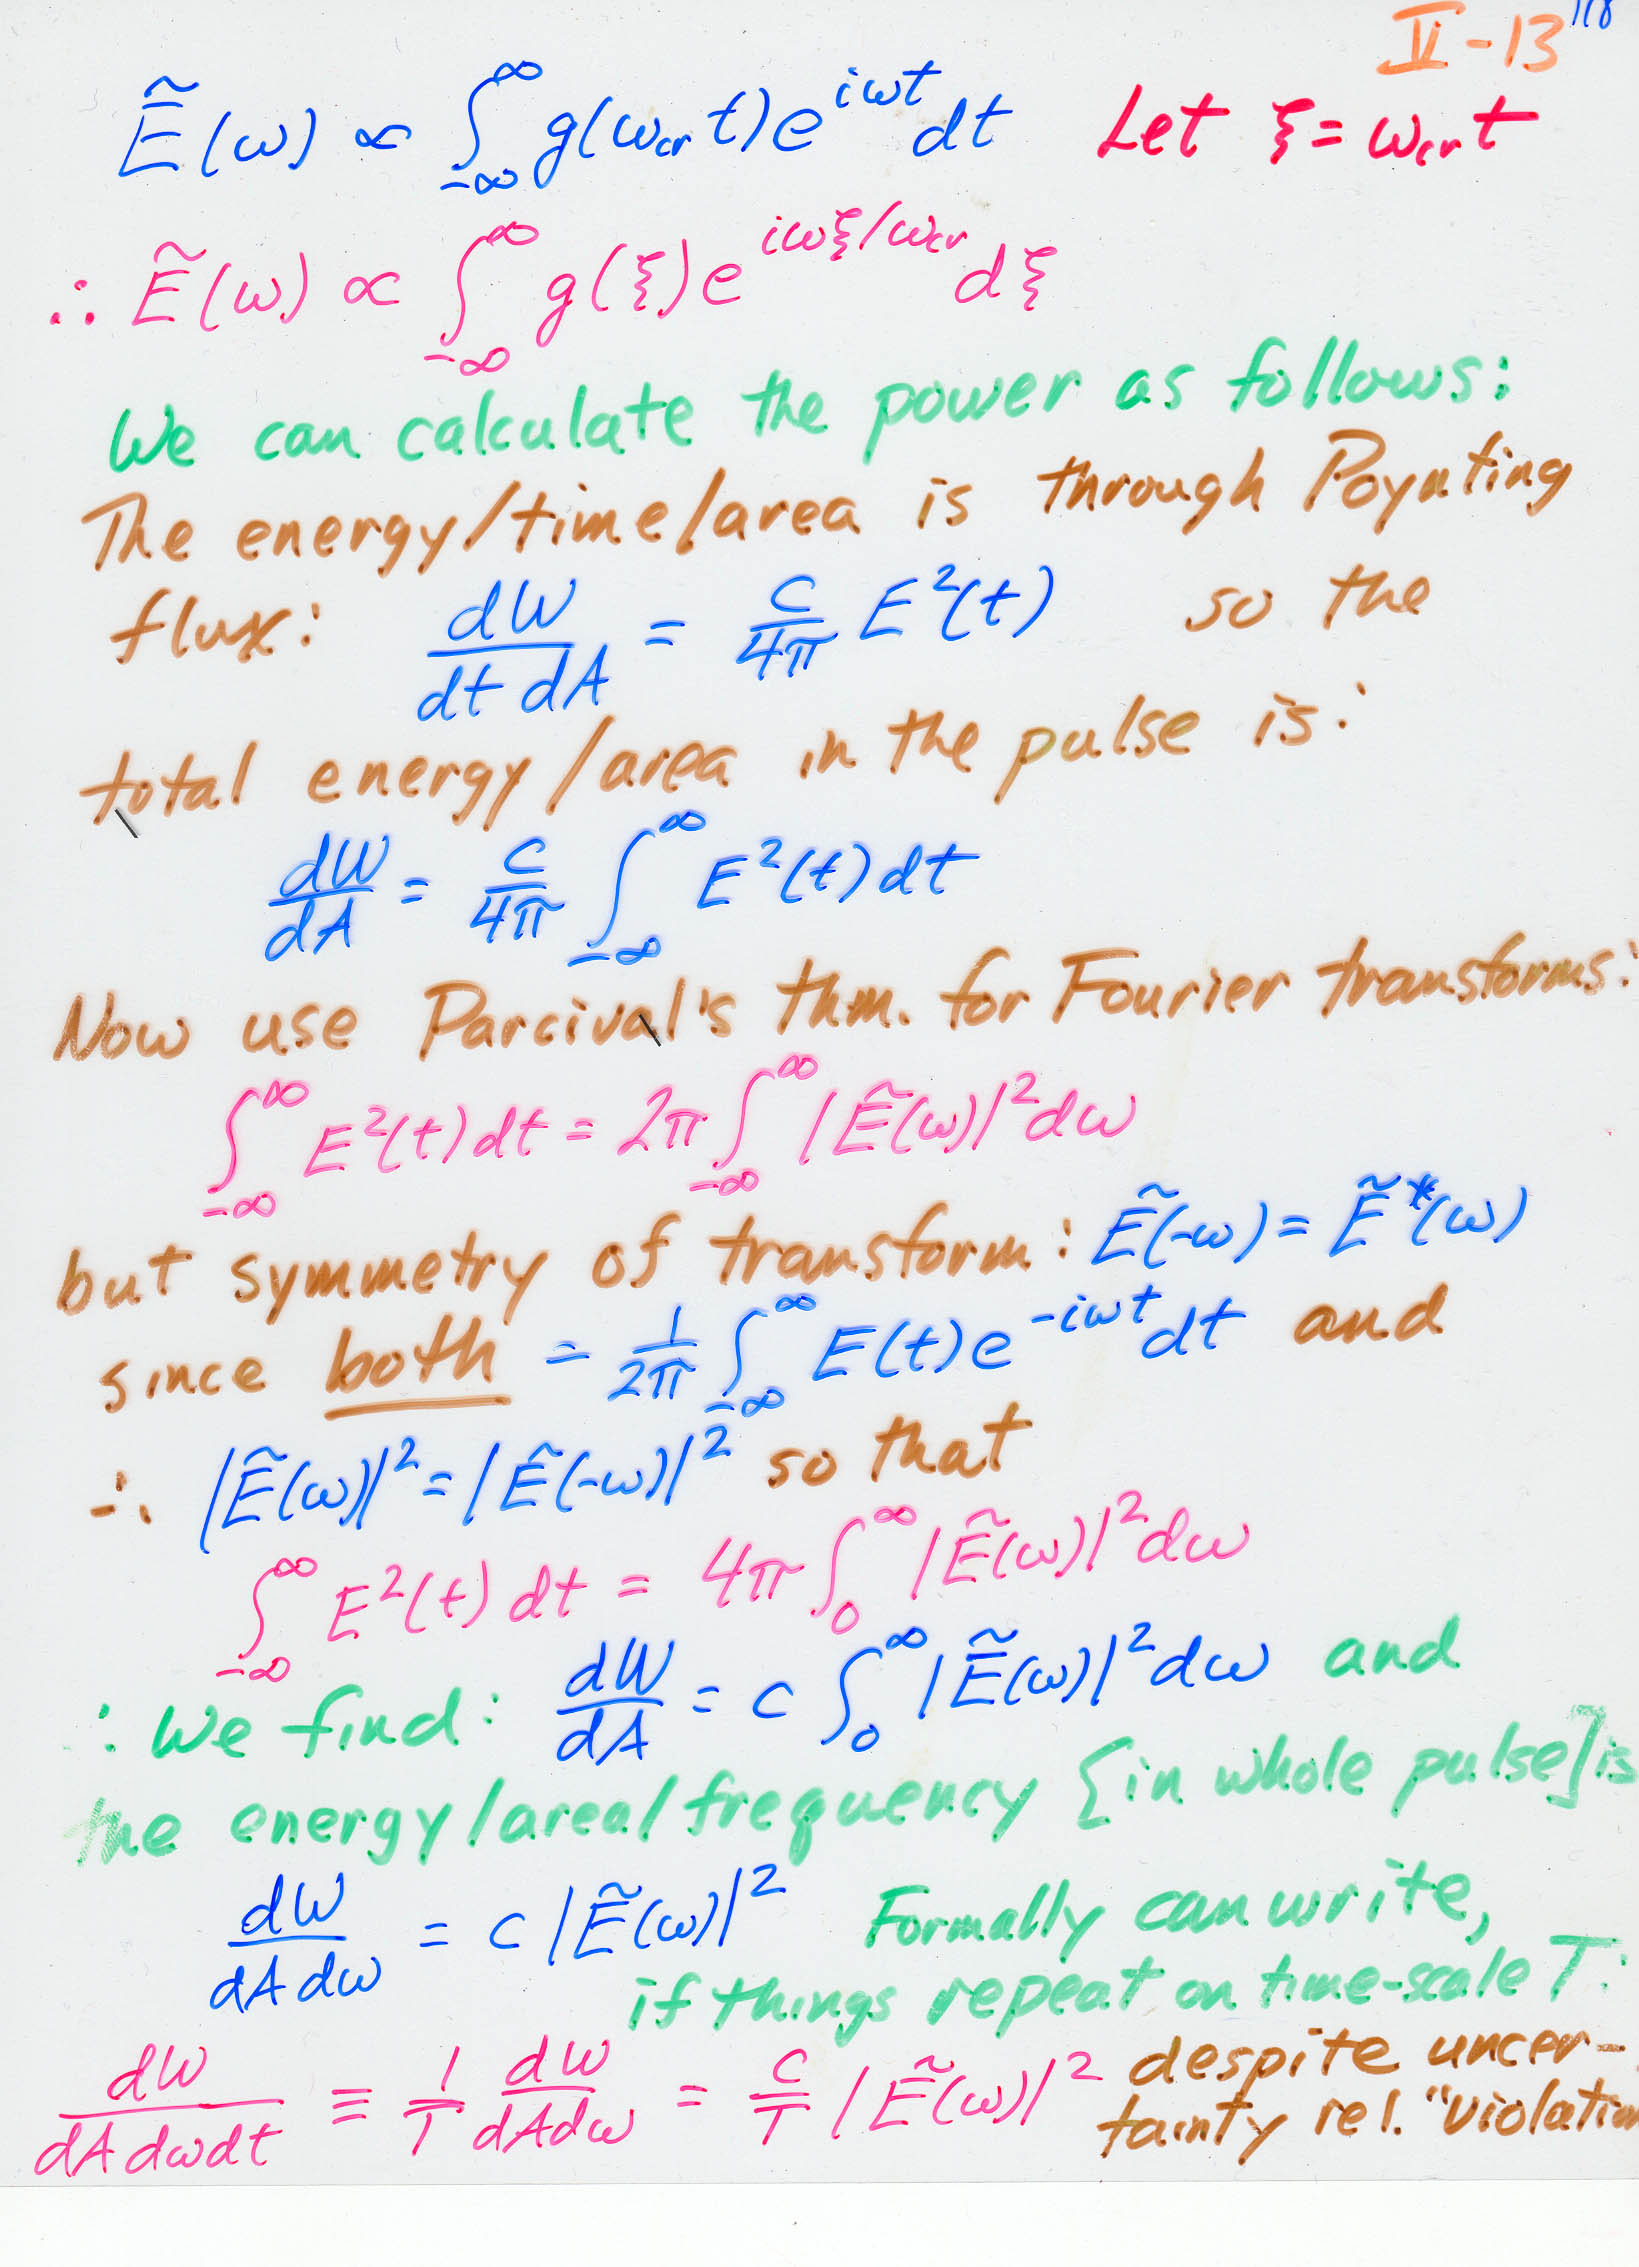 V-13 118
Ẽ(ω) ∝ ∫_{-∞}^{∞} g(ω_cr t) e^{iωt} dt Let ξ = ω_cr t
∴ Ẽ(ω) ∝ ∫_{-∞}^{∞} g(ξ) e^{iωξ/ω_cr} dξ
We can calculate the power as follows:
The energy/time/area is through Poynting
flux: dW/(dt dA) = c/4π E²(t) so the
total energy/area in the pulse is:
dW/dA = c/4π ∫_{-∞}^{∞} E²(t) dt
Now use Parcival's thm. for Fourier transforms:
∫_{-∞}^{∞} E²(t) dt = 2π ∫_{-∞}^{∞} |Ẽ(ω)|² dω
but symmetry of transform: Ẽ(-ω) = Ẽ*(ω)
since both = 1/2π ∫_{-∞}^{∞} E(t) e^{-iωt} dt and
∴ |Ẽ(ω)|² = |Ẽ(-ω)|² so that
∫_{-∞}^{∞} E²(t) dt = 4π ∫_0^{∞} |Ẽ(ω)|² dω
∴ We find: dW/dA = c ∫_0^{∞} |Ẽ(ω)|² dω and
the energy/area/frequency [in whole pulse] is
dW/(dA dω) = c |Ẽ(ω)|² Formally can write,
if things repeat on time-scale T:
dW/(dA dω dt) ≡ 1/T dW/(dA dω) = c/T |Ẽ(ω)|² despite uncer-
tainty rel. "violation